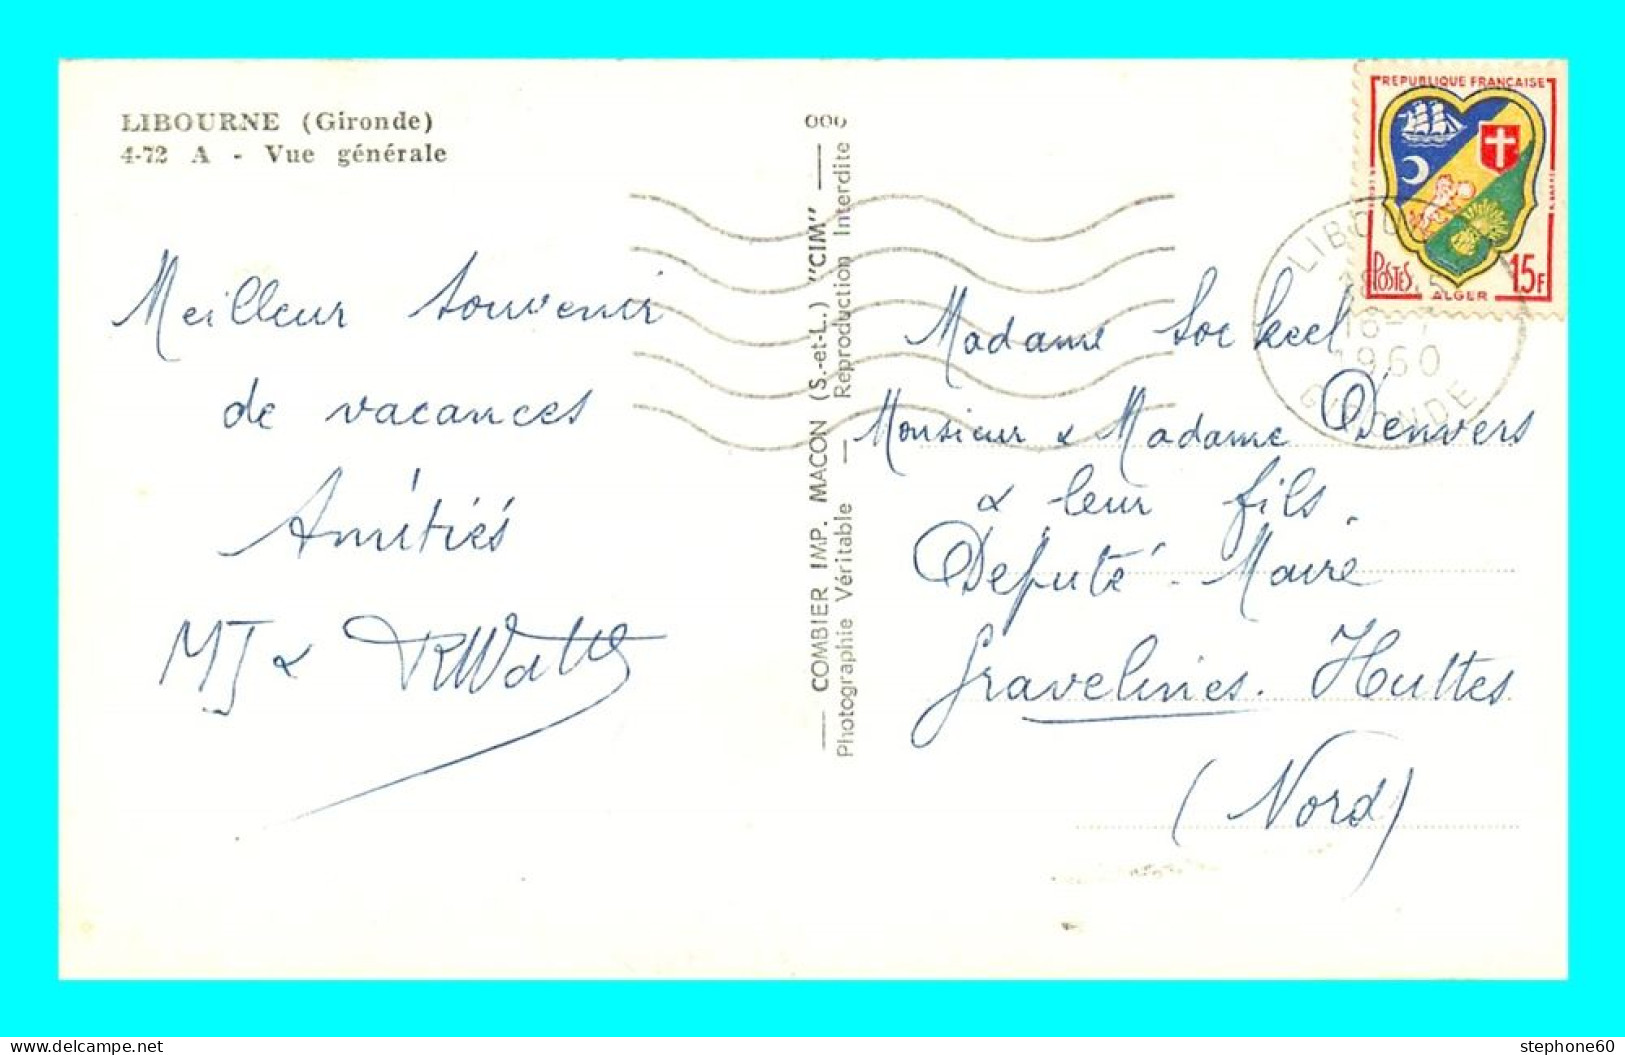 LIBOURNE (Gironde)
4-72 A - Vue générale
Meilleur souvenir
de vacances
Amitiés
MJ &
COMBIER IMP. MACON (S.-et-L.) "CIM"
Photographie Véritable — Reproduction Interdite
REPUBLIQUE FRANÇAISE
POSTES
15F
ALGER
LIBOU
18-7
1960
GIRONDE
Madame
Monsieur & Madame Denvers
& leur fils.
Deputé - Maire
Gravelines. Huttes
(Nord)
www.delcampe.net
stephone60